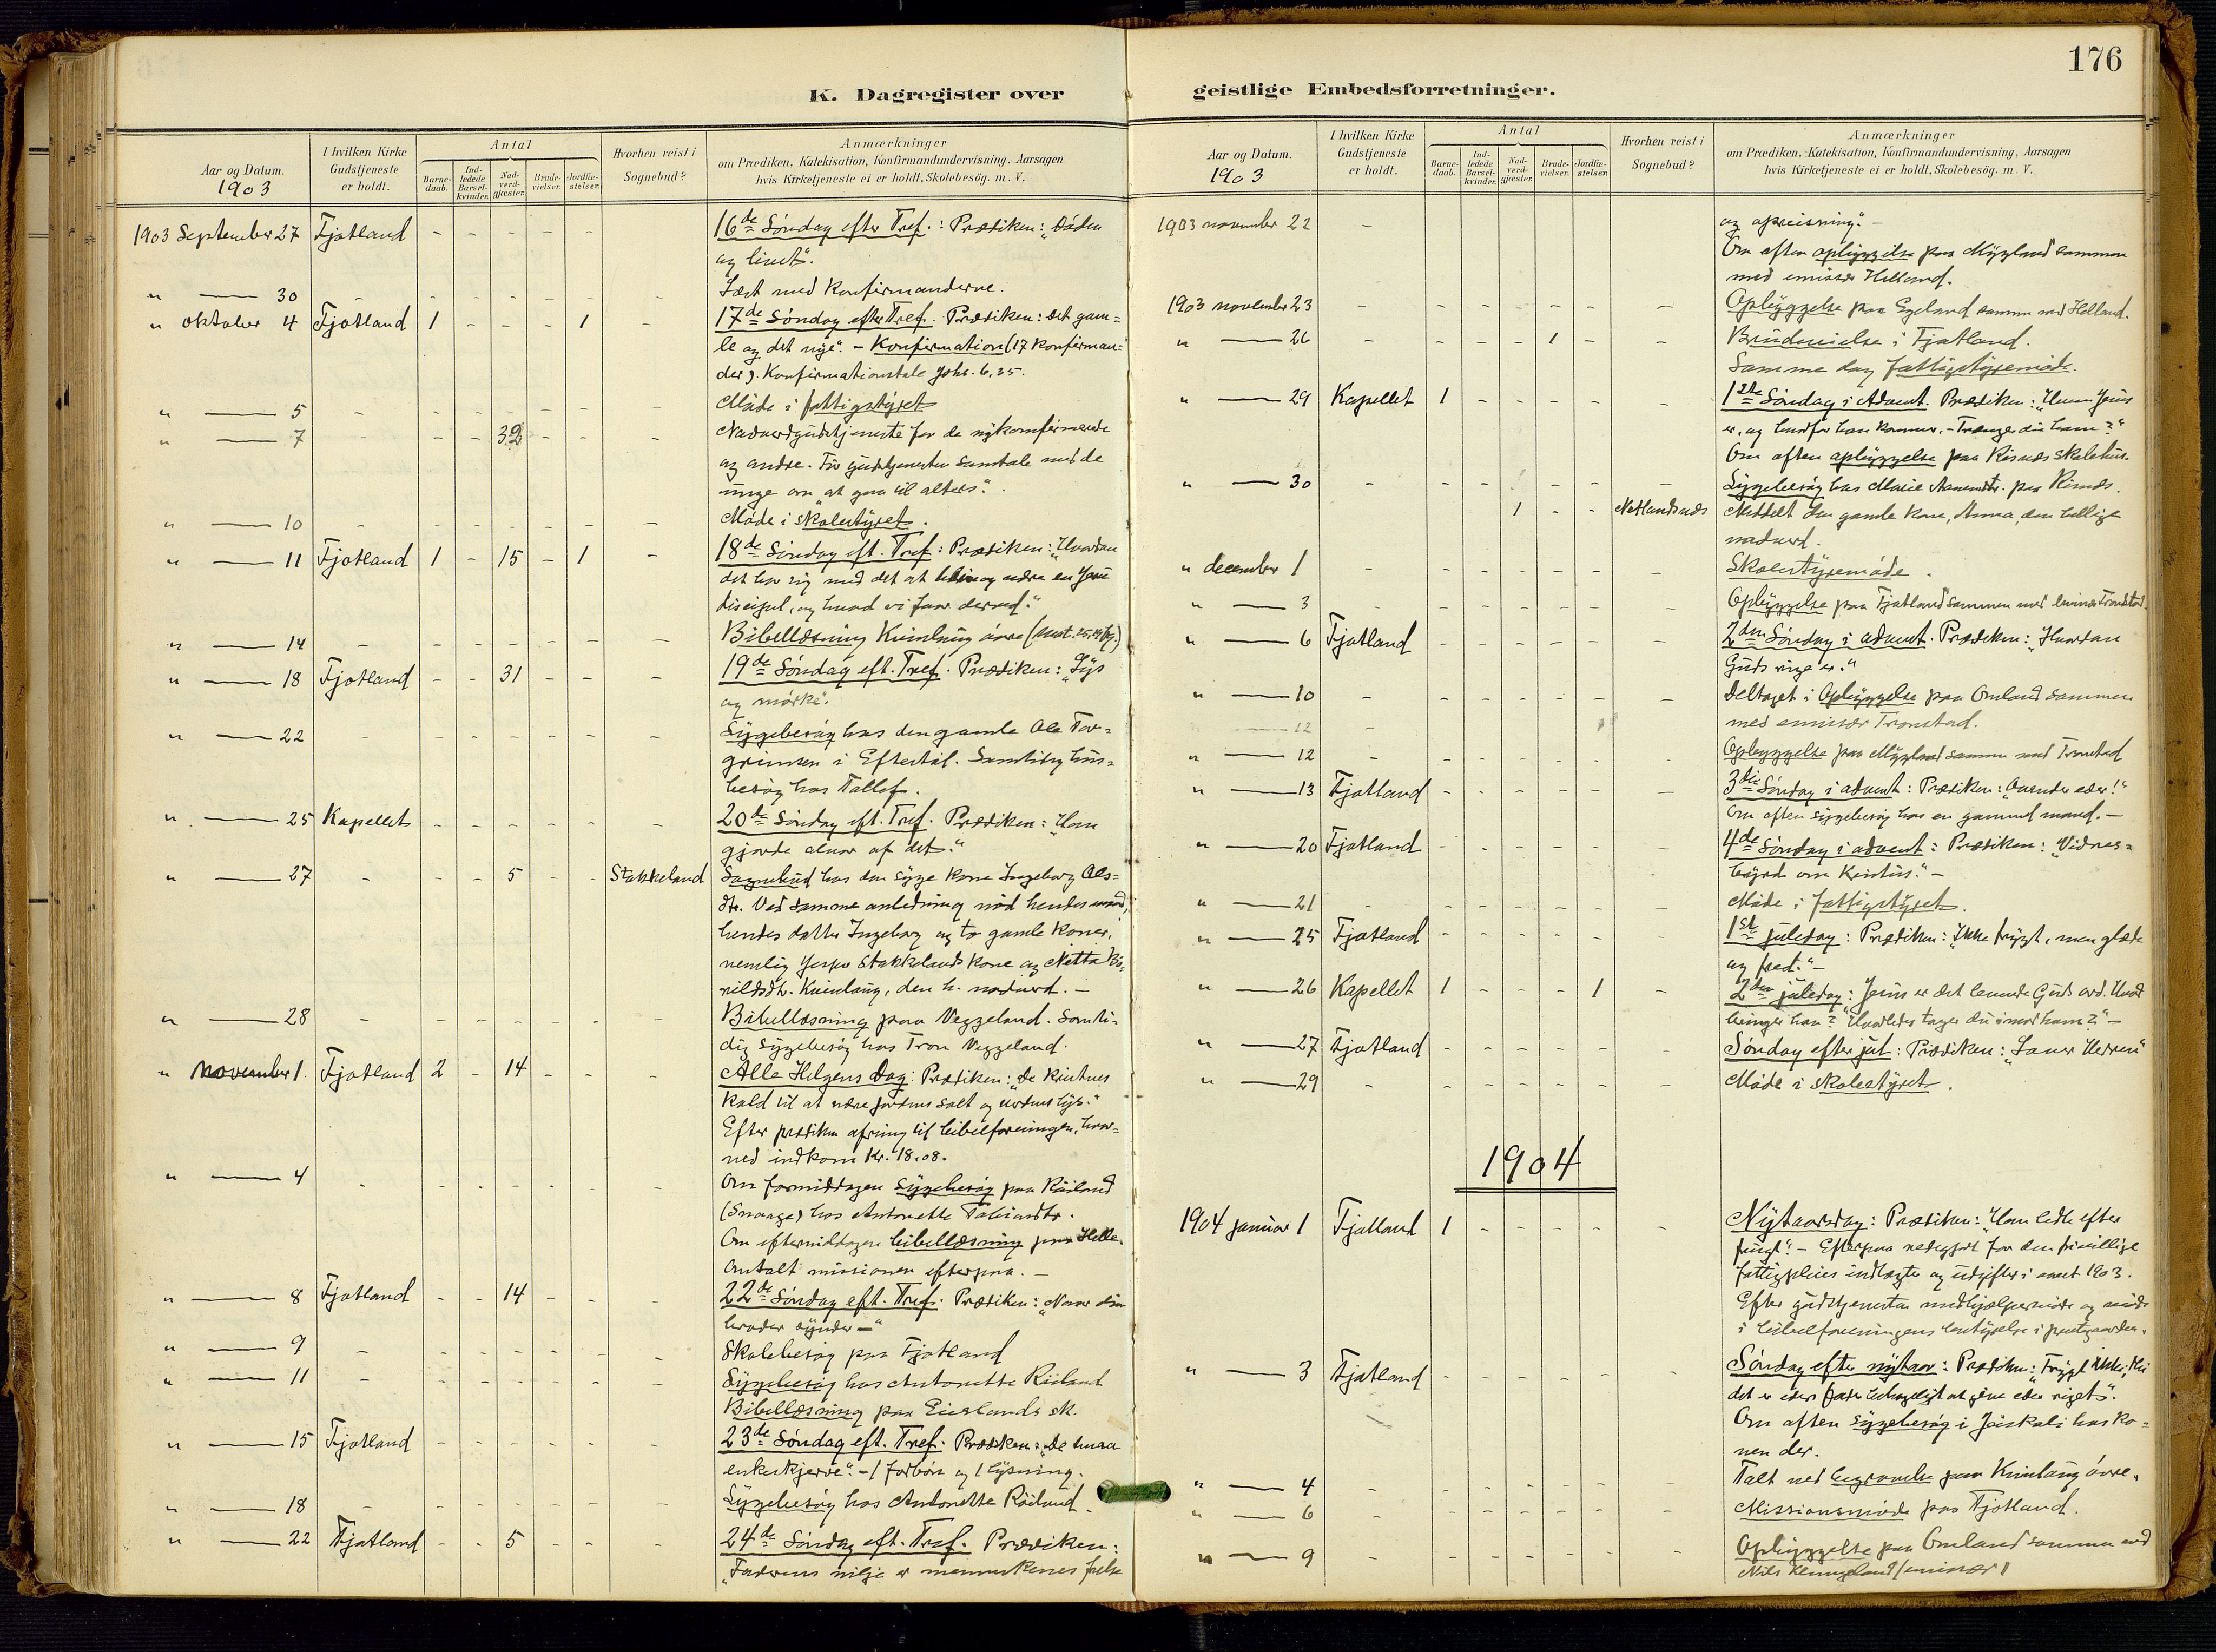 176
K. Dagregister over geistlige Embedsforretninger.
Aar og Datum. 1903
I hvilken Kirke Gudstjeneste er holdt.
Antal
Barne-daab. Ind-ledede Barsel-kvinder. Nad-verd-gjæster. Brude-vielser. Jordfæ-stelser.
Hvorhen reist i Sognebud?
Anmærkninger
om Prædiken, Katekisation, Konfirmandundervisning, Aarsagen
hvis Kirketjeneste ei er holdt, Skolebesög. m. V.
1903 September 27 Fjotland - - - - - 16de Søndag efter Tref.: Prædiken: "Døden
og livet".
" — 30 - - - - - - - Læst med konfirmanderne.
" oktober 4 Fjotland 1 - - - 1 - 17de Søndag efter Tref. Prædiken: Det gam=
le og det nye". - Konfirmation (17 konfirman=
der). Konfirmationstale Johs. 6,35.
" — 5 - - - - - - Møde i fattigstyret
" — 7 - - - 32 - - - Nadverdgudstjeneste for de nykonfirmerede
og andre. Før gudstjenesten samtale med de
unge om "at gaa til alters".
" — 10 - - - - - - - Møde i skolestyret.
" — 11 Fjotland 1 - 15 - 1 - 18de Søndag eft. Tref: Prædiken: "Hvordan
det har sig med det at blive og være en Jesu
discipel, og hvad vi faar derved."
" — 14 - - - - - - - Bibellæsning Kvinlaug øvre (Matt. 25,
" — 18 Fjotland - - 31 - - - 19de Søndag eft. Tref. Prædiken: "Lys
og mørke".
" — 22 - - - - - - - Sygebesøg hos den gamle Ole Tor=
grimsen i Eftestøl. Samtidig hus=
besøg hos Tallef.
" — 25 Kapellet - - - - - - 20de Søndag eft. Tref. Prædiken: "Han
gjorde alvor af det."
" — 27 - - - 5 - - Stakkeland Sognebud hos den syge kone Ingeborg Ols=
dtr. Ved samme anledning nød hendes mand,
hendes datter Ingeborg og to gamle koner,
nemlig Jesper Stakkelands kone og Netta
Kvinlaug, den h. nadverd. -
" — 28 - - - - - - - Bibellæsning paa Veggeland. Samti=
dig sygebesøg hos Tron Veggeland.
" November 1. Fjotland 2 - 14 - - - Alle Helgens Dag: Prædiken: "De kristnes
kald til at være jordens salt og verdens lys."
Efter prædiken ofring til bibelforeningen, hvor=
ved indkom Kr. 18.08.
" — 4 - - - - - - - Om formiddagen sygebesøg paa Røiland
(Snaage) hos Antonette Tobiasdtr.
Om eftermiddagen bibellæsning paa Helle.
Omtalt missionen efterpaa. -
" — 8 Fjotland - - 14 - - - 22de Søndag eft. Tref. Prædiken: "Naar din
broder synder -"
" — 9 - - - - - - - Skolebesøg paa Fjotland
" — 11 - - - - - - - Sygebesøg hos Antonette Röiland
Bibellæsning paa Eieslands sk.
" — 15 Fjotland - - - - - - 23de Søndag eft. Tref. Prædiken: "De smaa
enkeskjerve". - 1 forbøn og 1 lysning.
" — 18 - - - - - - - Sygebesøg hos Antonette Röiland.
" — 22 Fjotland - - 5 - - - 24de Søndag eft. Tref. Prædiken:
"Faderens vilje er menneskenes frelse
Aar og Datum. 1903
I hvilken Kirke Gudstjeneste er holdt.
Antal
Barne-daab. Ind-ledede Barsel-kvinder. Nad-verd-gjæster. Brude-vielser. Jordfæ-stelser.
Hvorhen reist i Sognebud?
Anmærkninger
om Prædiken, Katekisation, Konfirmandundervisning, Aarsagen
hvis Kirketjeneste ei er holdt, Skolebesög. m. V.
1903 november 22 - og opreisning". -
Om aften opbyggelse paa Mygland sammen
med emissær Helland.
1903 november 23 - - - - - - - Opbyggelse paa Egeland samm. med Helland.
" — 26 - - - - 1 - - Brudevielse i Fjotland.
Samme dag fattigstyremøde.
" — 29 Kapellet 1 - - - - - 1ste Søndag i Advent. Prædiken: "Hvem Jesus
er, og hvorfor han kommer. - Trænger du ham?"
Om aften opbyggelse paa Risnæs skolehus.
" — 30 - - - - - - Sygebesøg hos Marie paa Risnæs.
1 - - Netlandsnæs Meddelt den gamle kone, Anna, den hellige
nadverd.
" december 1 - - - - - - - Skolestyremøde.
" — 3 - - - - - - - Opbyggelse paa Fjotland sammen med emissær Tronstad.
" — 6 Fjotland - - - - - - 2den Søndag i advent. Prædiken: "Hvordan
Guds rige er."
" — 10 - - - - - - - Deltaget i Opbyggelse paa Omland sammen
med emissær Tronstad.
— 12 -
" — 12 - - - - - - - Opbyggelse paa Mygland sammen med Tronstad
" — 13 Fjotland - - - - - - 3die Søndag i advent: Prædiken: "Omvender eder!"
Om aften sygebesøg hos en gammel mand. -
" — 20 Fjotland - - - - - - 4de Søndag i advent: Prædiken: "Vidnes=
byrd om Kristus." -
" — 21 - - - - - - - Møde i fattigstyret.
" — 25 Fjotland - - - - - - 1ste juledag: Prædiken: "Ikke frygt, men glæde
og fred." -
" — 26 Kapellet 1 - - - 1 - 2den juledag: "Jesus er det levende Guds ord. Hvad
bringer han? Hvorledes tager du imod ham?" -
" — 27 Fjotland - - - - - - Søndag efter jul: Prædiken: "Lover Herren"
" — 29 - - - - - - - Møde i skolestyret.
1904
1904 januar 1 Fjotland 1 - - - - - Nytaarsdag: Prædiken: "Han ledte efter
frugt". - Efterpaa redegjort for den frivillige
fattigpleies indtægter og udgifter i aaret 1903.
Efter gudstjenesten medhjælpermøde og møde
i bibelforeningens bestyrelse i prestegaarden.
" — 3 Fjotland - - - - - - Søndag efter nytaar: Prædiken: "Frygt ikke, thi
det er eders fader behageligt at give eder riget".
Om aften sygebesøg i hos ko=
nen der.
" — 4 - - - - - - - Talt ved begravelse paa Kvinlaug øvre.
" — 6 - - - - - - - Missionsmøde paa Fjotland.
" — 9 - - - - - - - Opbyggelse paa Omland sammen med
Nils (emissær)